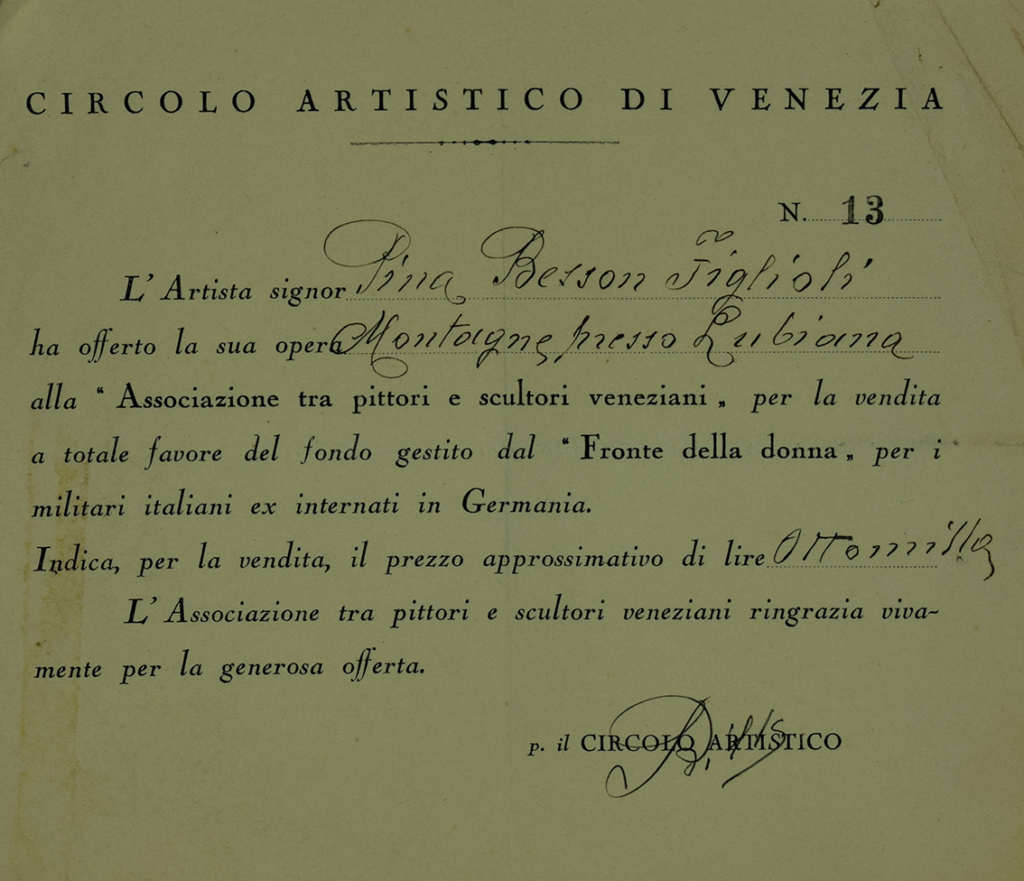 CIRCOLO ARTISTICO DI VENEZIA
N. 13
L' Artista signor Pina Besson Figlioli
ha offerto la sua opera Montagne presso Lubiana
alla “ Associazione tra pittori e scultori veneziani „ per la vendita
a totale favore del fondo gestito dal “ Fronte della donna „ per i
militari italiani ex internati in Germania.
Indica, per la vendita, il prezzo approssimativo di lire Ottomilla
L' Associazione tra pittori e scultori veneziani ringrazia viva-
mente per la generosa offerta.
p. il CIRCOLO ARTISTICO